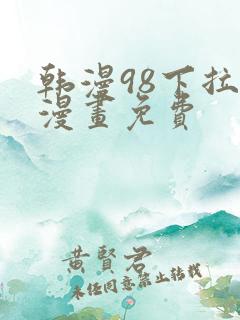 韩漫98下拉
漫畫免費
黃賢君
未经同意禁止转载